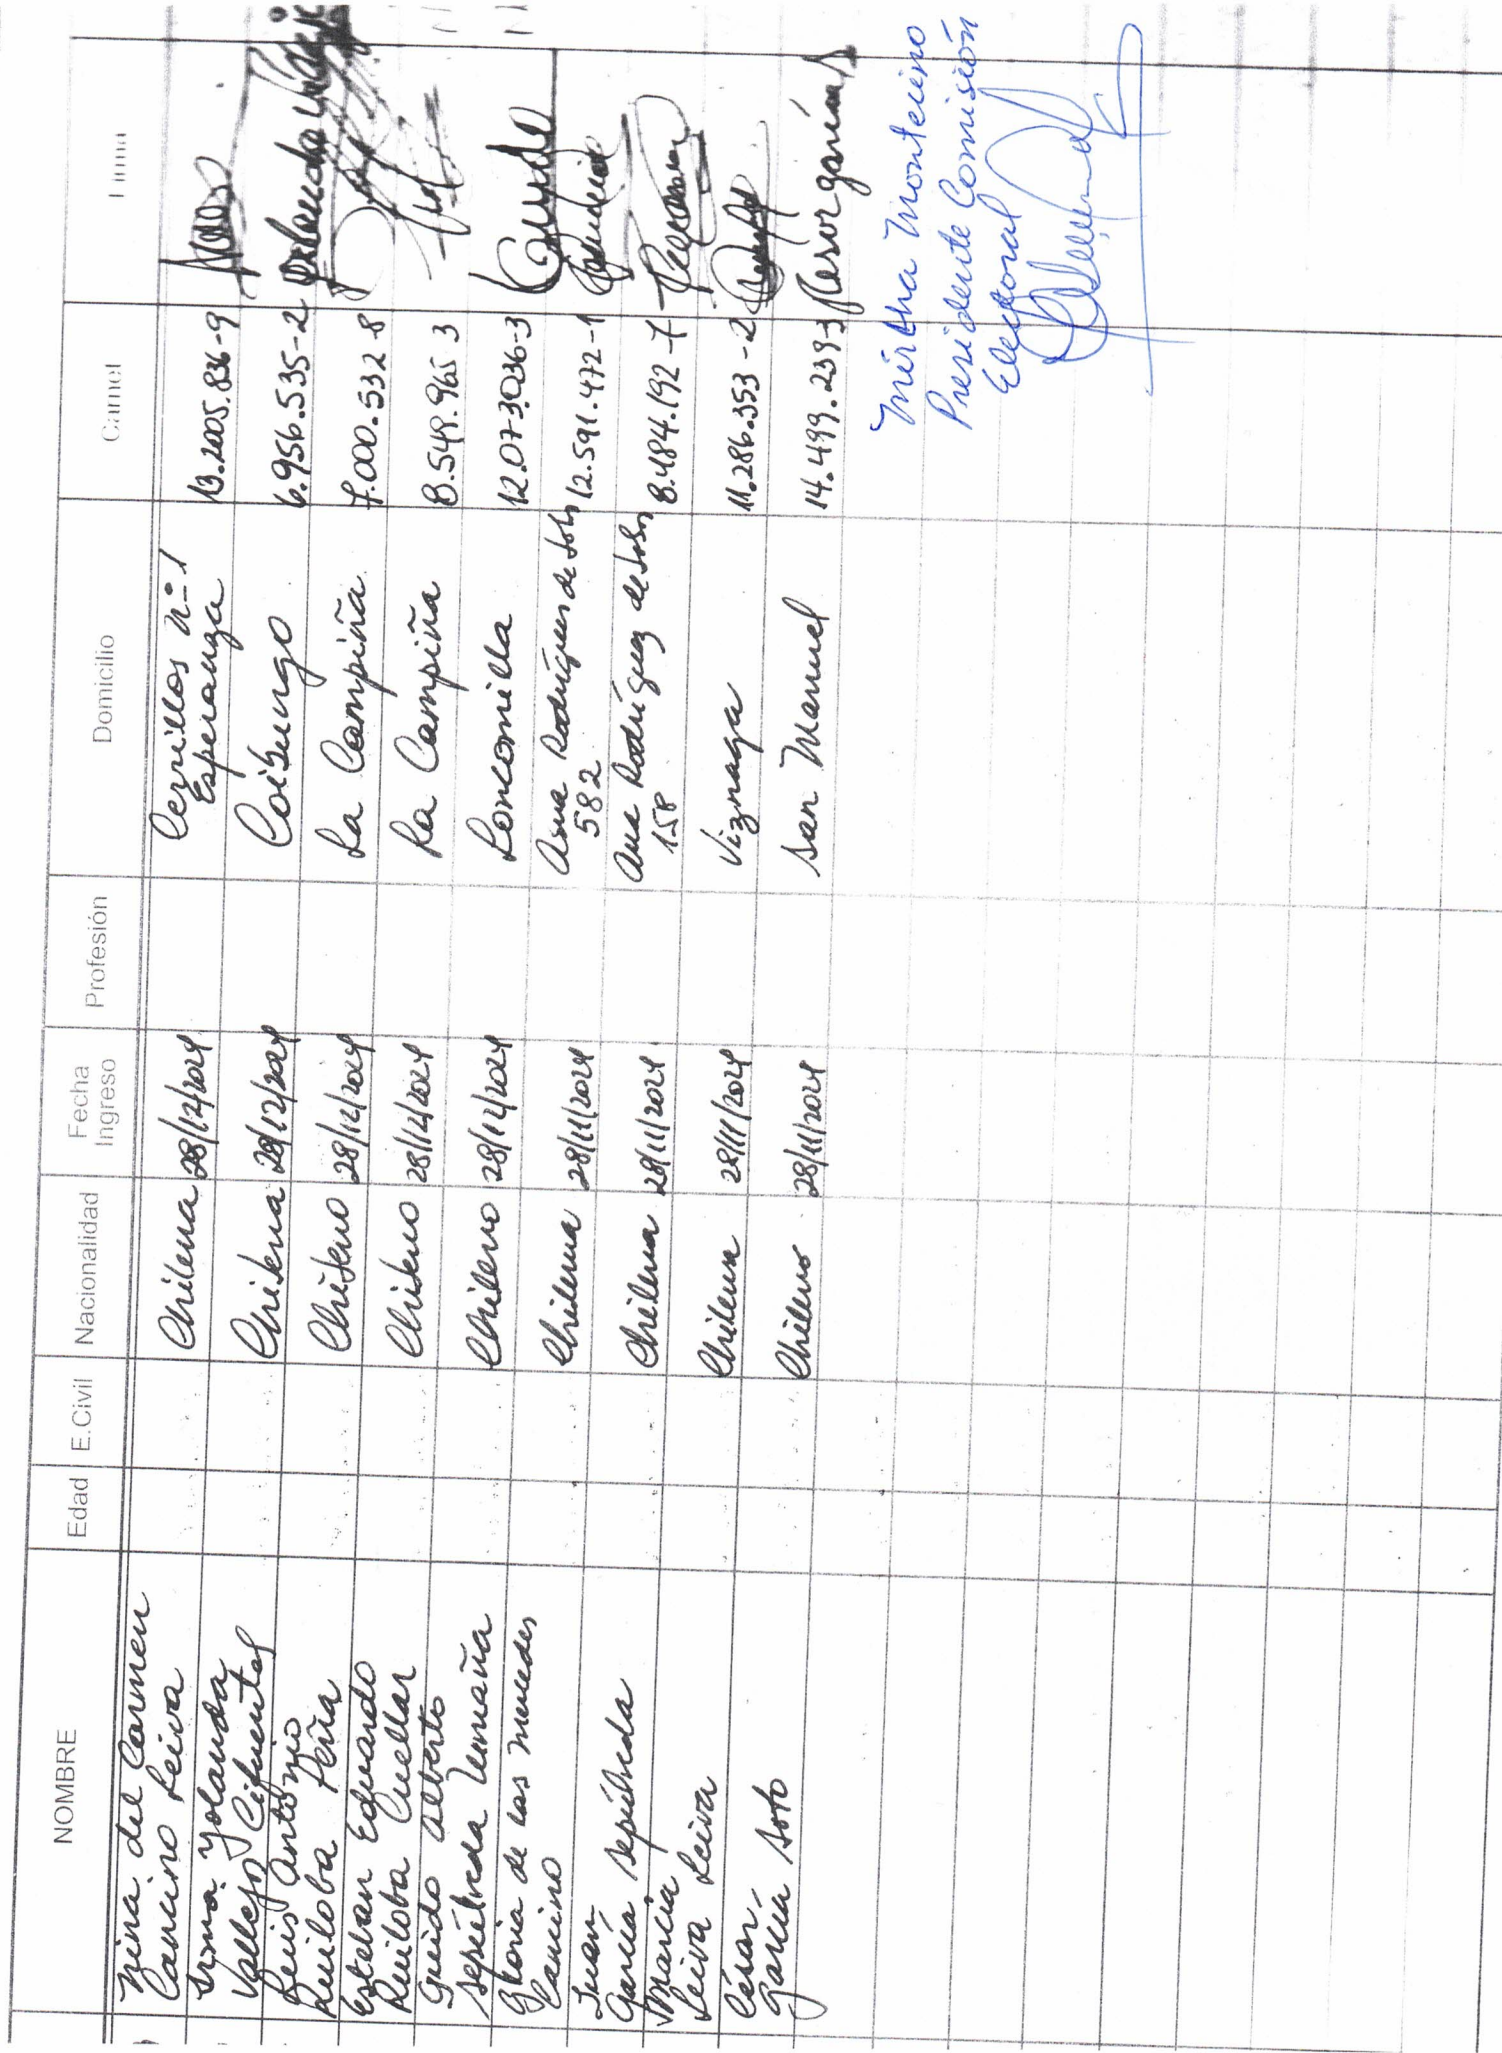 NOMBRE Edad E.Civil Nacionalidad Fecha Ingreso Profesión Domicilio Carnet Firma
Nina del Carmen Cancino Leiva Chilena 28/12/2024 Cerrillos n=1 Esperanza 13.2005.836-9
Irma Yolanda Vallejos Cifuentes Chilena 28/12/2024 Coibungo 6.956.535-2
Luis Antonio Ruiloba Peña Chileno 28/12/2024 La Campiña 7.000.532-8
Esteban Eduardo Ruiloba Cuellar Chileno 28/12/2024 La Campiña 8.549.965 3
Guido Alberto Sepúlveda Umaña Chileno 28/12/2024 Loncomilla 12.073.036-3
Gloria de las Mercedes Cancino Chilena 28/11/2024 Rodríguez de Solis 582 12.591.472-1
Juan García Sepúlveda Chilena 28/11/2024 Ana Rodríguez de Solis 158 8.484.192-7
Marcia Leiva Leiva Chilena 28/11/2024 Viznaga 11.286.353-2
César García Soto Chileno 28/11/2024 San Manuel 14.499.239-3 Cesar García S
Mirtha Montecino
Presidente Comisión
Electoral